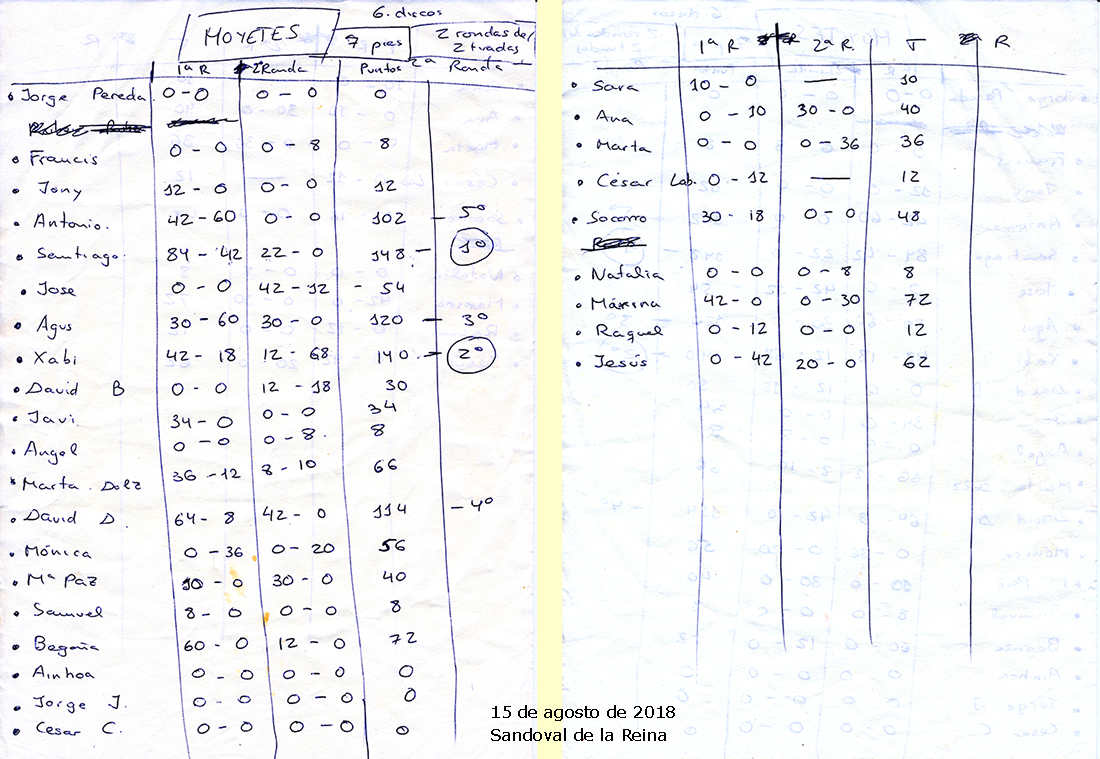 6. discos
HOYETES
7 pies
2 rondas de
2 tiradas
1ª R 2ª Ronda Puntos 2ª Ronda
• Jorge Pereda 0 - 0 0 - 0 0
• Francis 0 - 0 0 - 8 8
• Jony 12 - 0 0 - 0 12
• Antonio. 42 - 60 0 - 0 102 - 5º
• Santiago. 84 - 42 22 - 0 148 - 1º
• Jose 0 - 0 42 - 12 - 54
• Agus 30 - 60 30 - 0 120 - 3º
• Xabi 42 - 18 12 - 68 140 - 2º
• David B 0 - 0 12 - 18 30
• Javi 34 - 0 0 - 0 34
• Angel 0 - 0 0 - 8. 8
• Marta. Dolz 36 - 12 8 - 10 66
• David D. 64 - 8 42 - 0 114 - 4º
• Mónica 0 - 36 0 - 20 56
• Mª Paz 10 - 0 30 - 0 40
• Samuel 8 - 0 0 - 0 8
• Begoña 60 - 0 12 - 0 72
• Ainhoa 0 - 0 0 - 0 0
• Jorge J. 0 - 0 0 - 0 0
• Cesar C. 0 - 0 0 - 0 0
1ª R 2ª R T R
• Sara 10 - 0 — 10
• Ana 0 - 10 30 - 0 40
• Marta 0 - 0 0 - 36 36
• César Lab. 0 - 12 — 12
• Socorro 30 - 18 0 - 0 48
• Natalia 0 - 0 0 - 8 8
• Máxima 42 - 0 0 - 30 72
• Raquel 0 - 12 0 - 0 12
• Jesús 0 - 42 20 - 0 62
15 de agosto de 2018
Sandoval de la Reina